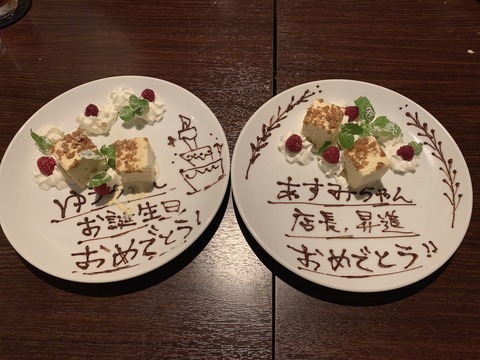 お誕生日
おめでとう！
あすみちゃん
店長、昇進
おめでとう!!